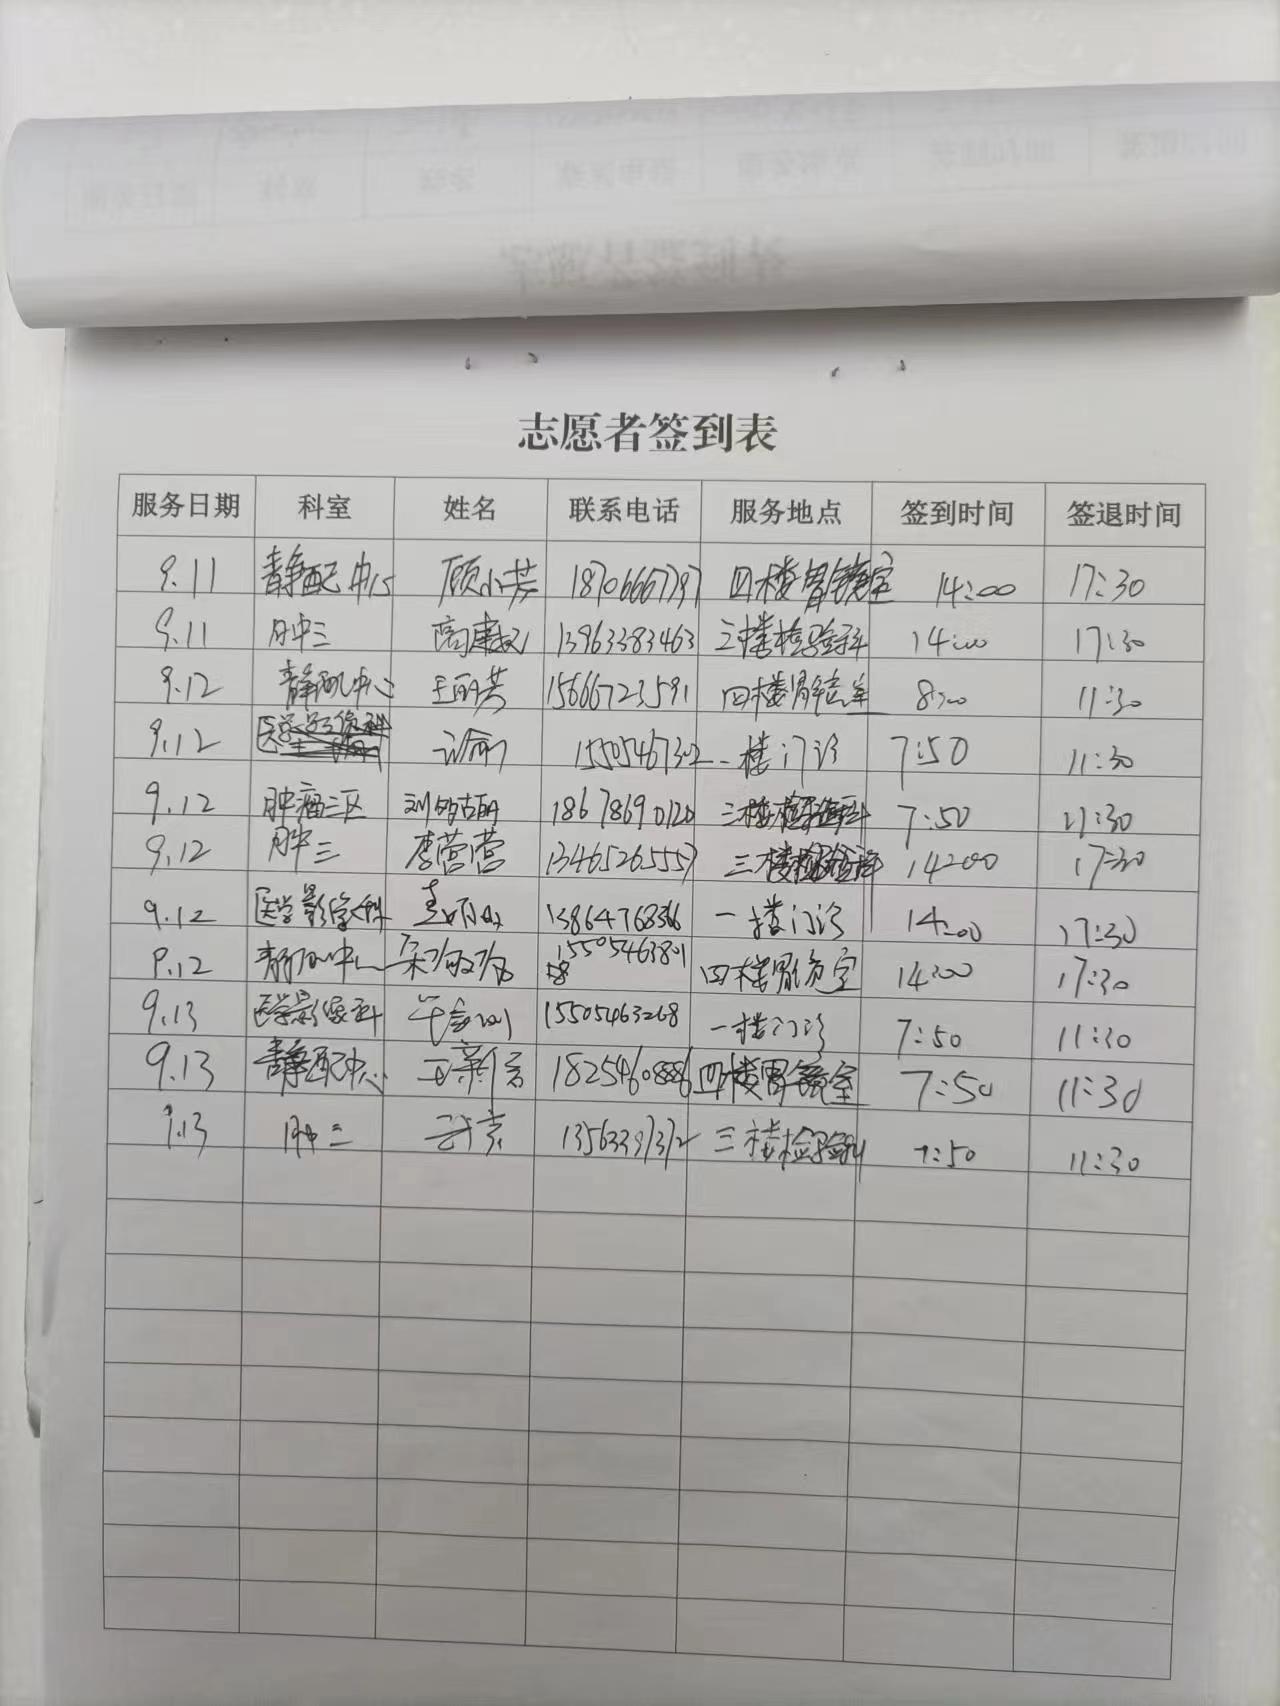 志愿者签到表
服务日期 科室 姓名 联系电话 服务地点 签到时间 签退时间
9.11 静配中心 顾小芳 18706667797 四楼胃镜室 14:00 17:30
9.11 肿三 13963383463 三楼检验科 14:00 17:30
9.12 静配中心 王丽芸 15666723591 四楼胃镜室 8:00 11:30
9.12 医学影像科 15505467302 一楼门诊 7:50 11:30
9.12 肿瘤三区 18678690120 三楼检验科 7:50 11:30
9.12 肿三 李营营 13465265557 三楼检验科 14:00 17:30
9.12 医学影像科 13864768366 一楼门诊 14:00 17:30
9.12 静配中心 15505463801 四楼胃镜室 14:00 17:30
9.13 医学影像科 15505463268 一楼门诊 7:50 11:30
9.13 静配中心 18254608886 四楼胃镜室 7:50 11:30
9.13 肿三 三楼检验科 7:50 11:30